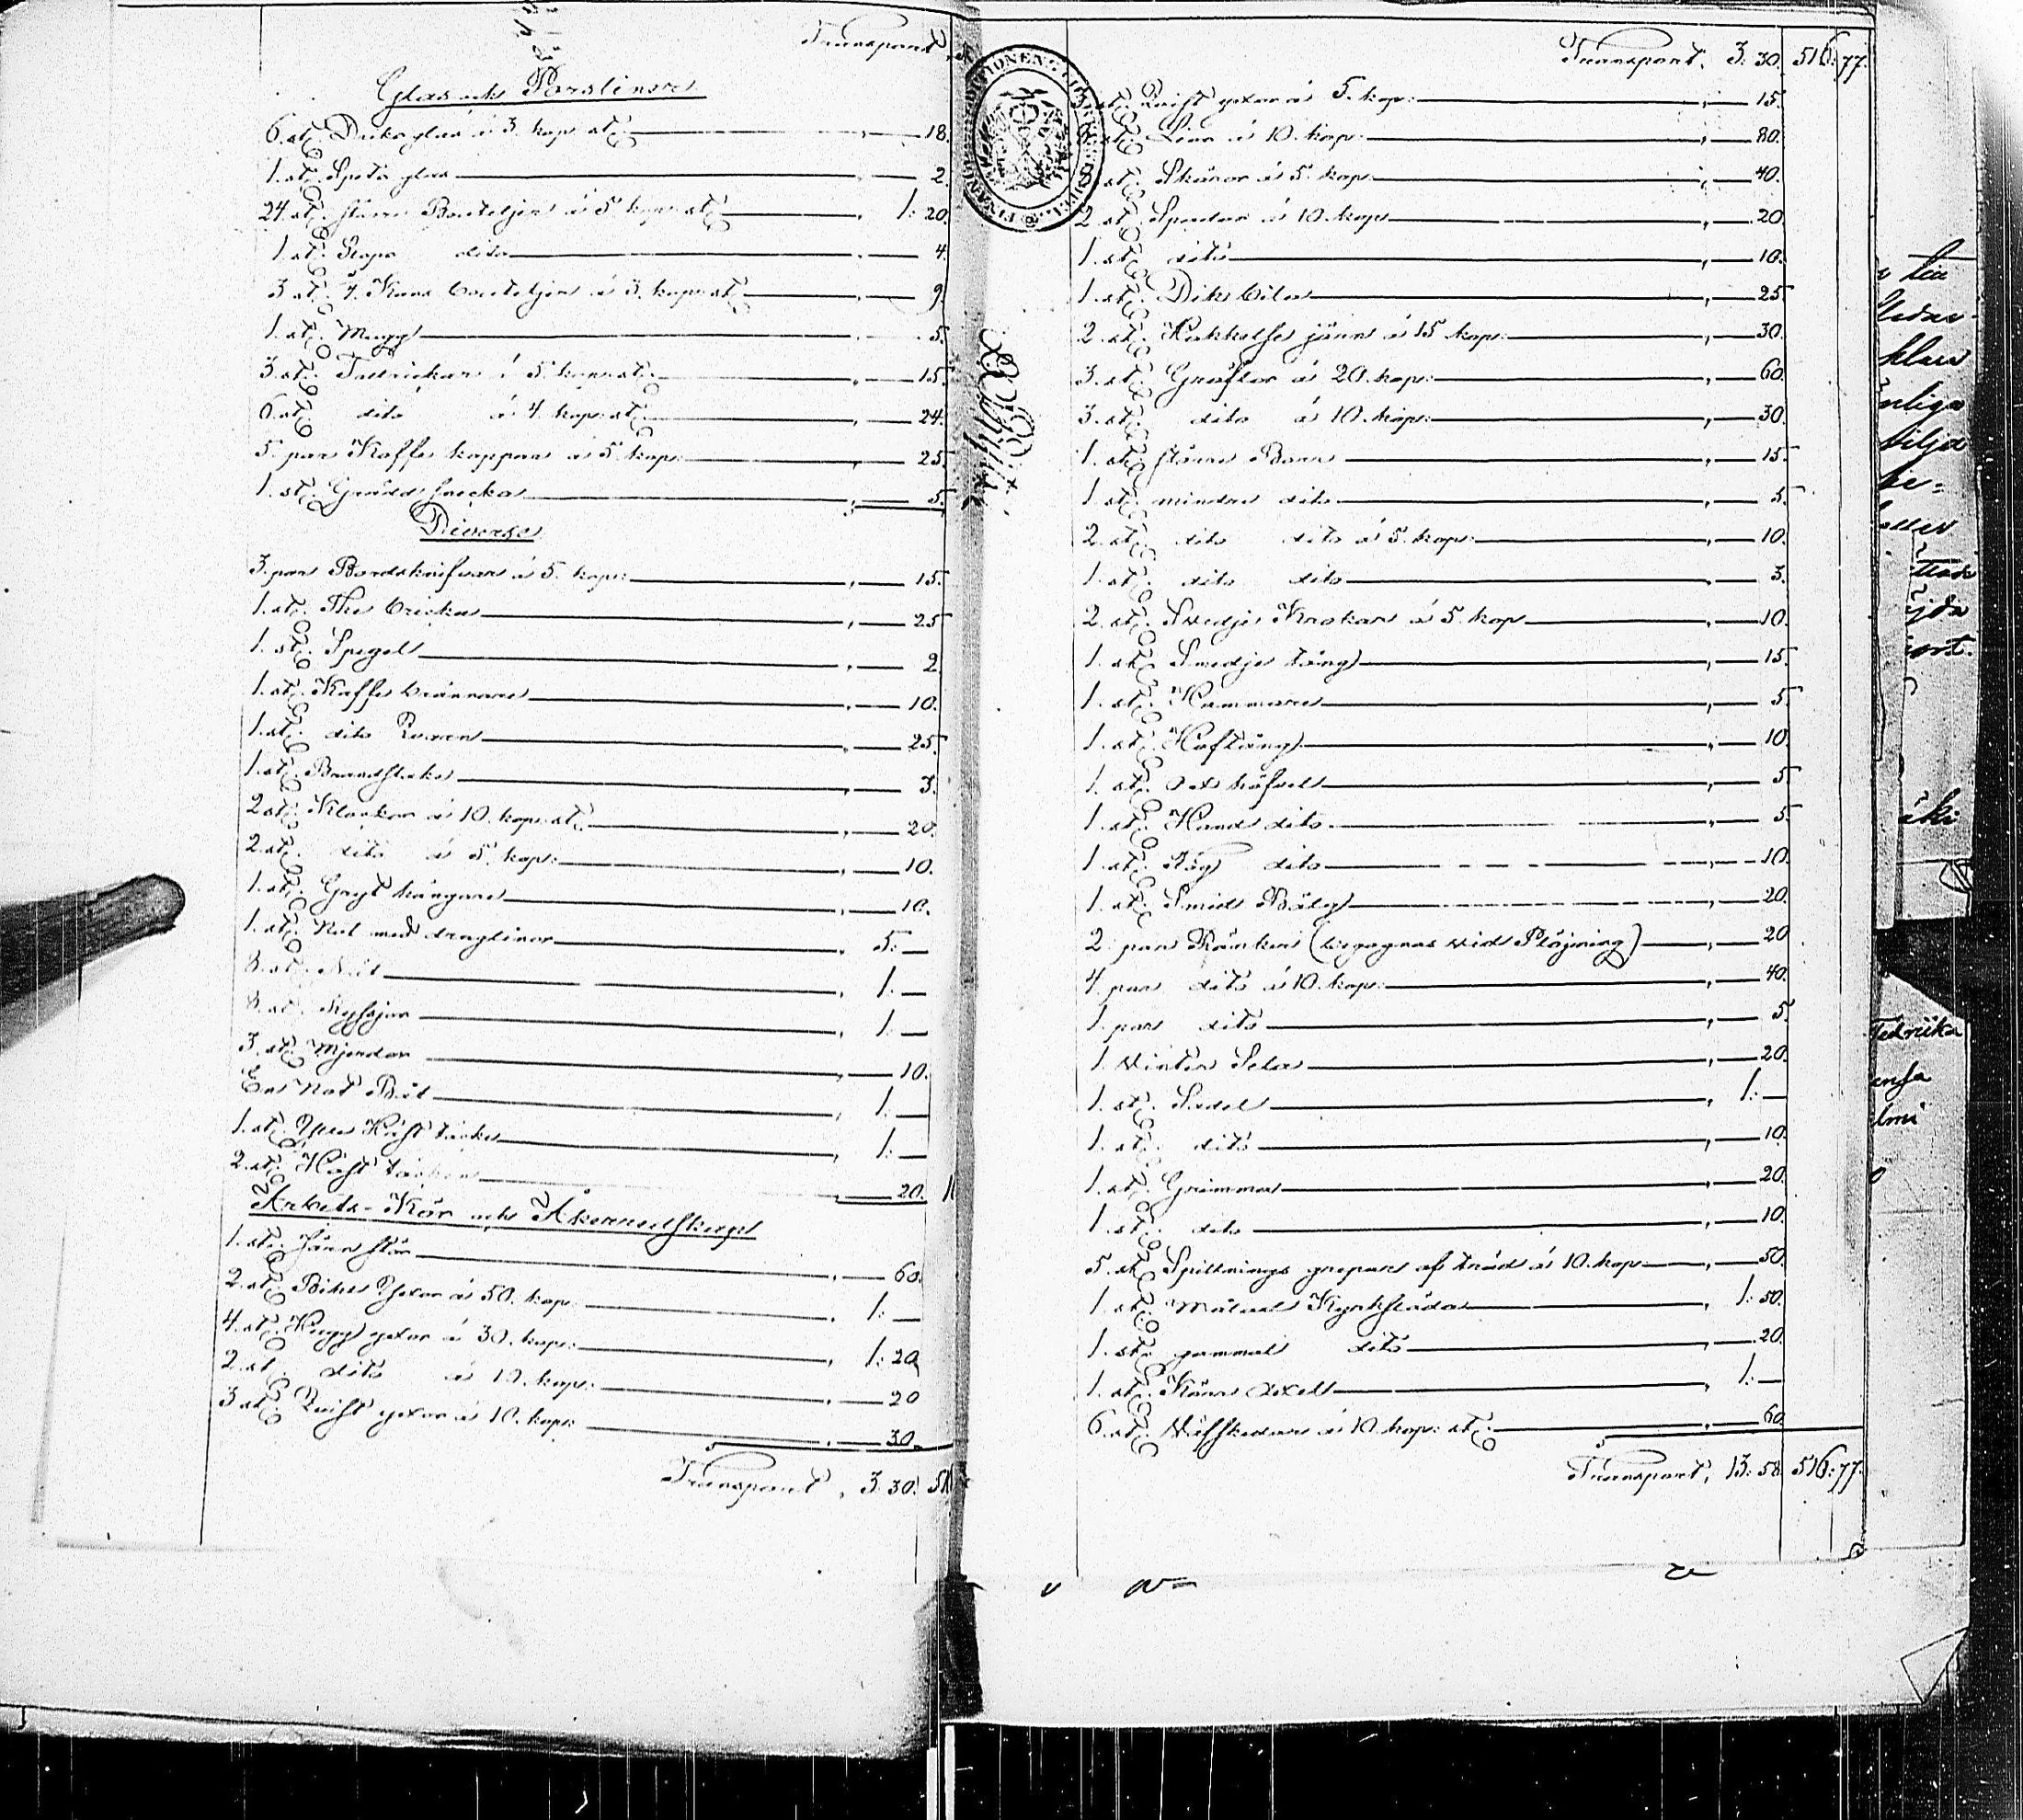 Transport
Glas och Porslinor
6. st. Dricks glas á 3. kop. st. 18.
1. st. Spets glas 2.
24. st. större Bouteljer á 5 kop. st. 1: 20
1. st. Stops dito 4
3 st. ½ Kans bouteljer á 3. kop. st. 9
1. st. Mugg 5.
3. st. Tallrickar á 5. kop. st. 15
6. st. dito á 4. kop. st. 24.
5. par Kaffe koppar á 5. kop. 25
1. st. Grädd snicka 5.
Diverse
3. par Bordsknifvar á 5. kop. 15.
1. st. The bricka 25
1. st. Spegel 2
1. st. Kaffe brännare 10.
1. st. dito Qvarn 25.
1. st. 3.
2 st. Klockor á 10. kop. st. 20.
2. st. dito á 5. kop. 10.
1. st. Gryt hängare 10.
1. st. Not med draglinor 5: —
8. st. Nät 1. —
8. st. Ryssjor 1: —
3. st. Mjerdar 10.
En Not Båt 1: —
1. st. Ylle Häst täcke 1: —
2. st. Häst täcken 20.
Arbets- Kör och Åkerredskap
1. st. Järn stör 60.
2. st. Bilor Yxor á 50. kop. 1: —
4. st. Hugg yxor á 30. kop. 1: 20
2. st. dito á 10. kop. 20
3 st. Qvist yxor á 10. kop. 30.
Transport, 3: 30. 51
Transport, 3: 30. 516: 77.
st. Qvist yxor á 5. kop. 15.
st. Liar á 10. kop. 80.
8 st. Skäror á 5. kop. 40.
2 st. Spadar á 10. kop 20
1. st. dito 10.
1. st. Diks bila 25
2. st. Hakkelse järn á 15 kop. 30.
3. st. Gräftor á 20. kop. 60.
3. st. dito á 10. kop. 30
1. st. större Borr 15
1. st. mindre dito 5
2. st. dito dito á 5. kop. 10
1. st. dito dito 3.
2. st. Svedje Krokar á 5. kop 10.
1. st. Smedje tång 15
1. st. Hammare 5
1. st. Hoftång 10
1. st. höfvel 5
1. st. Hand dito 5.
1. st. dito 10.
1. st. Smid Bälg 20.
2. par Ränkor (begagnas vid Plöjning) 20
4. par dito á 10. kop. 40.
1. par dito 5.
1. Vinter Sela 20.
1. st. Sadel 1: —
1. st. dito 10
1. st. Grimma 20.
1. st. dito 10.
5. st. Spillnings grepar af träd á 10. kop 50.
1. st. Målad Kyrksläda 1: 50.
1. st. gammal dito 20.
1. st. Kärr Axell 1: —
6. st. Väfskedar á 10. kop. st. 60.
Transport, 13: 58. 516: 77.